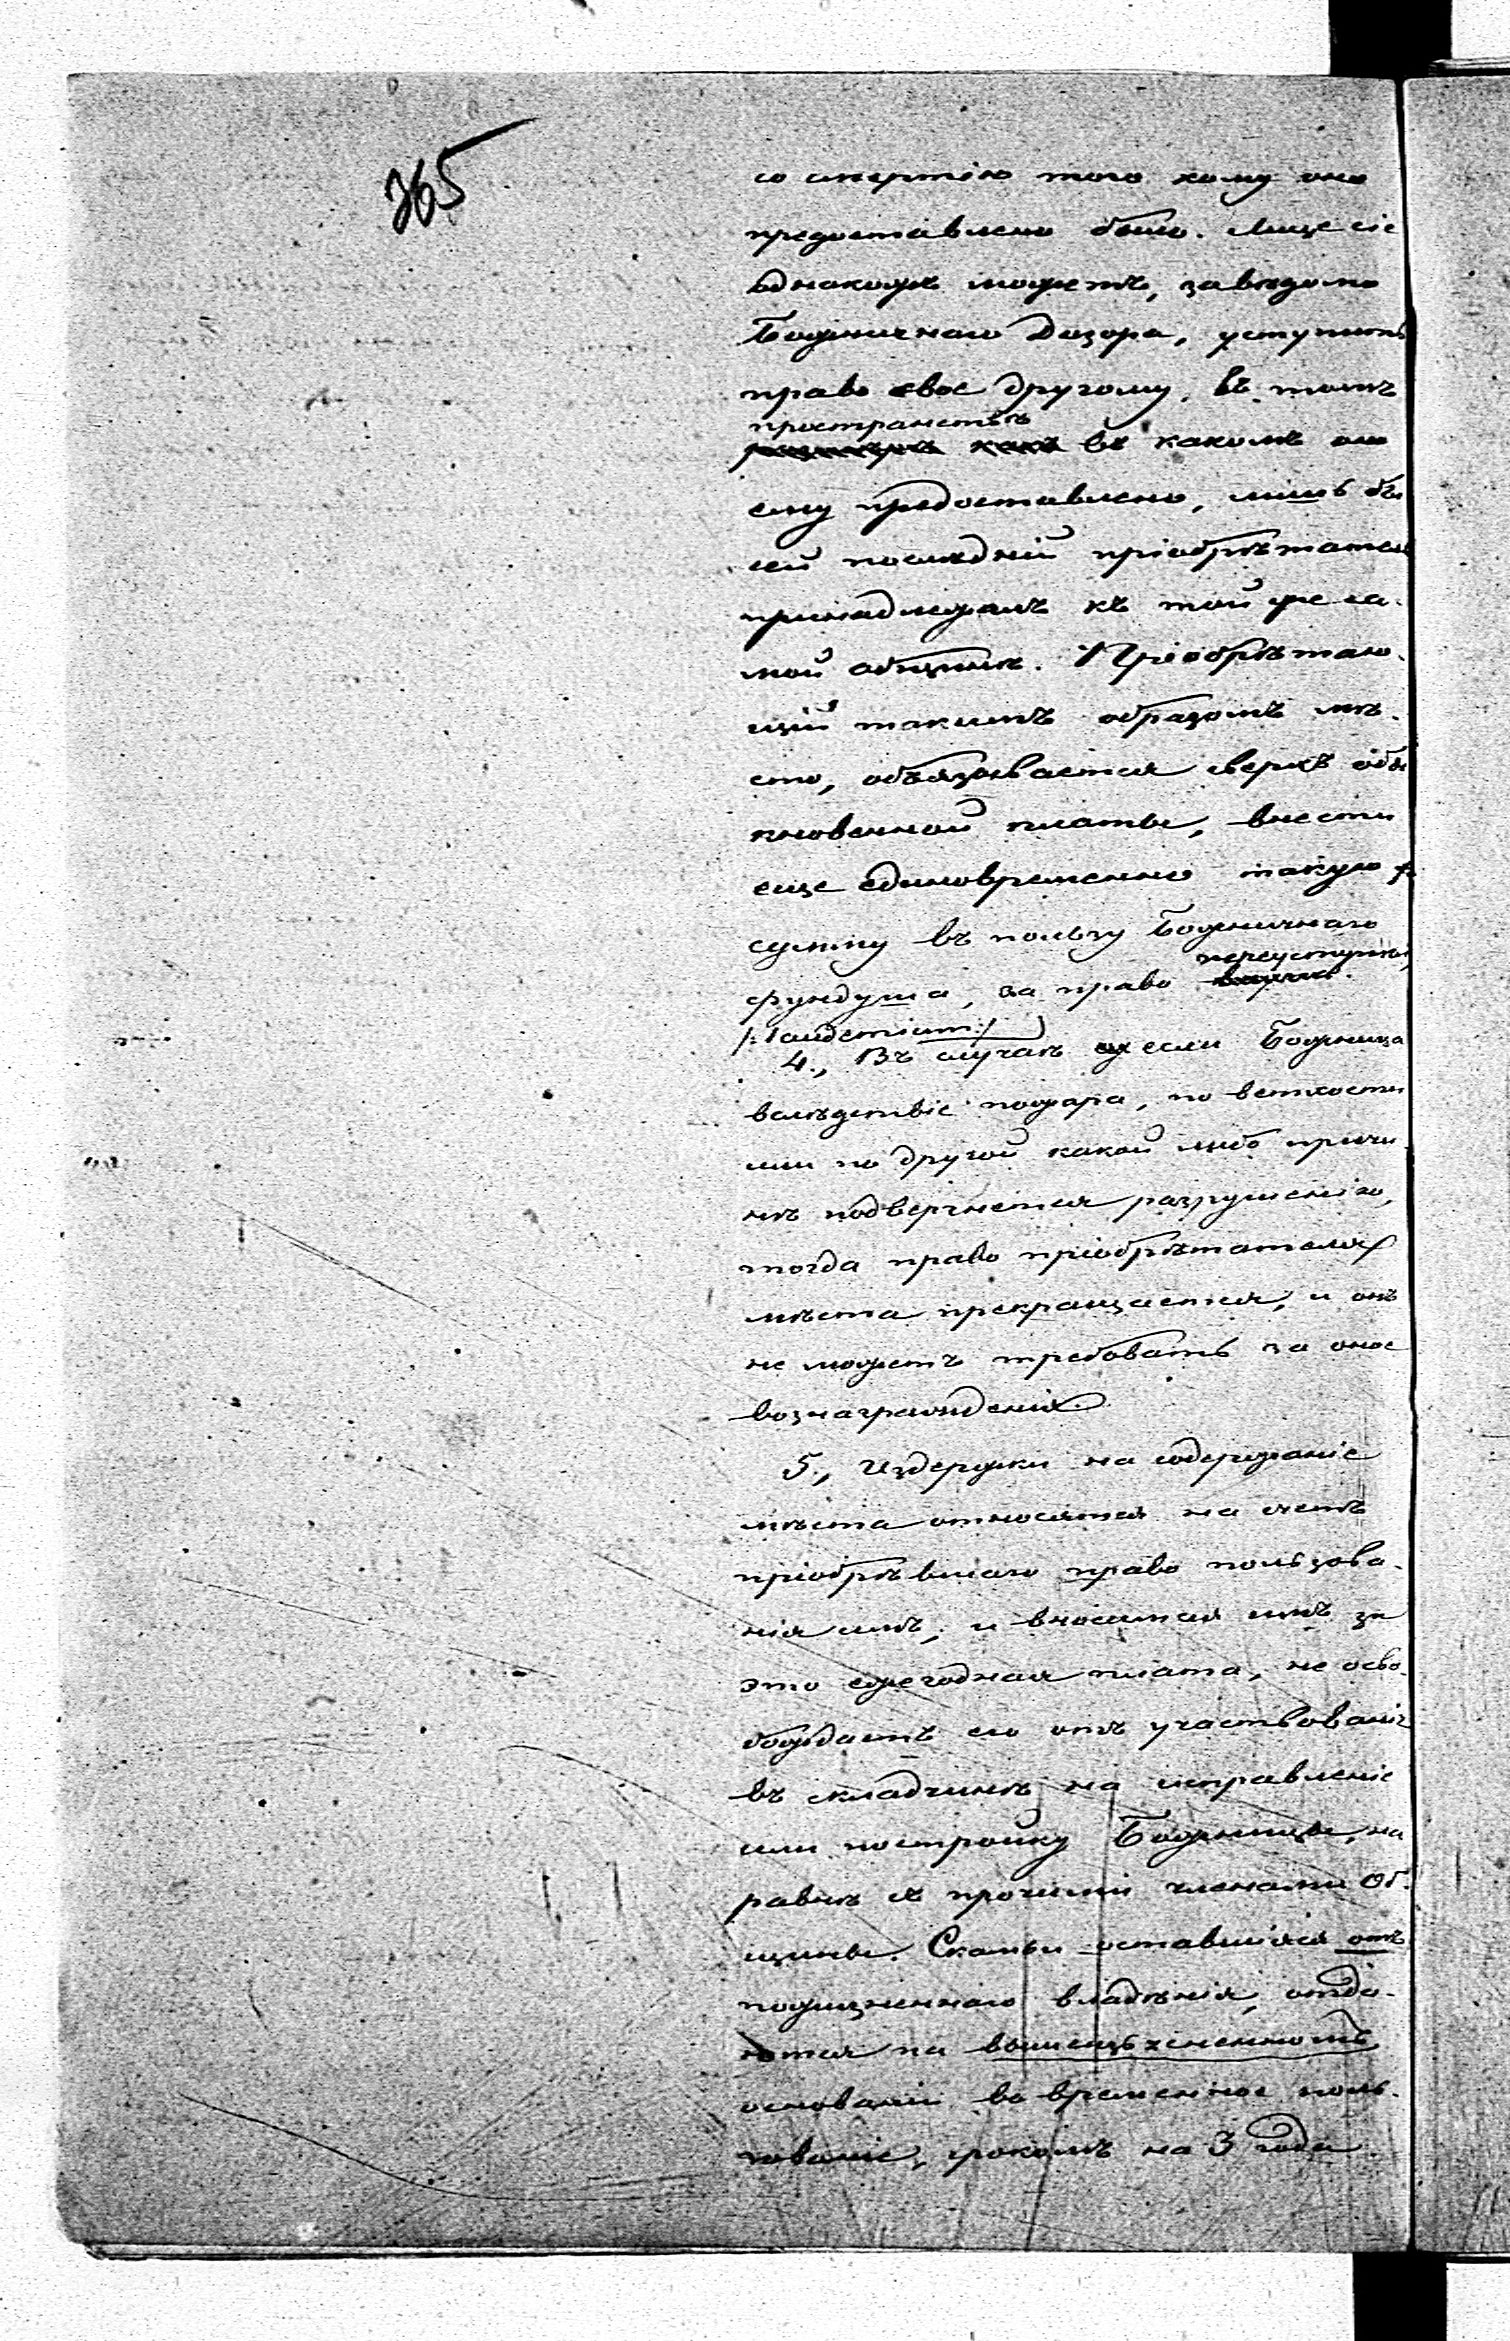 365
со смертію того кому оно
предоставлено было. Лице сіе
однакожъ можетъ, завѣдомо
Божничнаго Дозора, уступить
право свое другому, въ томъ
пространствѣ
какъ въ какомъ оно
ему предоставлено, лишь бы
сей послѣдній пріобрѣтатель
принадлежалъ къ той же са-
мой общинѣ. Пріобрѣтаю-
щій такимъ образомъ мѣ-
сто, обязывается сверхъ обы
кновенной платы, внести
еще единовременно такую
сумму въ пользу Божничнаго
переуступки,
фундуша, за право
/: laudemium :/
4., Въ случаѣ если Божница
вслѣдствіе пожара, по ветхости
или по другой какой либо причи-
нѣ подвергнется разрушенію,
тогда право пріобрѣтателя
мѣста прекращается, и онъ
не можетъ требовать за оное
вознагражденія.
5., Издержки на содержаніе
мѣста относятся на счетъ
пріобрѣвшаго право пользова-
нія имъ, и вносимая имъ за
это ежегодная плата, не осво-
бождаетъ его отъ участвованія
въ складчинѣ на исправленіе
или постройку Божницы, на
равнѣ съ прочими членами Об-
щины. Скамьи оставшіяся отъ
пожизненнаго владѣнія, отда-
ются на вышеизъясненномъ
основаніи во временное поль-
зованіе, срокомъ на 3 года.